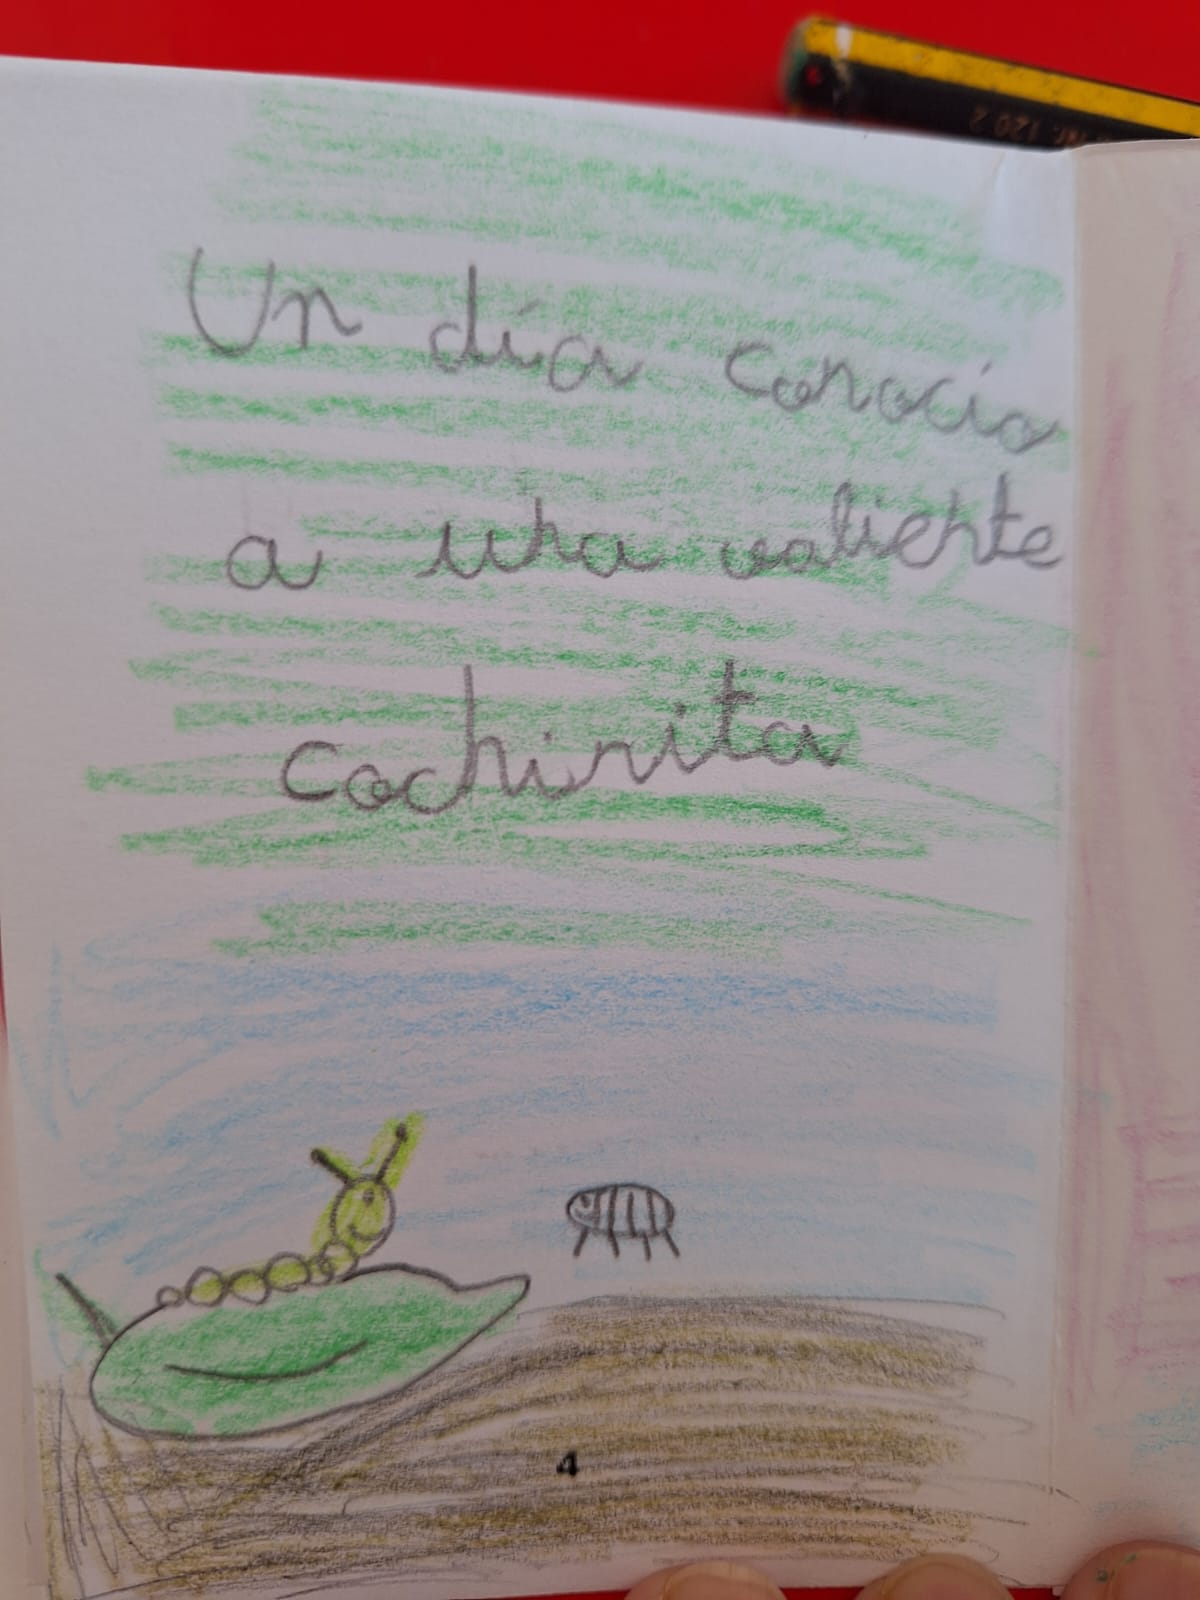 Nr. 120 2
Un día conoció
a una valiente
cochinita
4